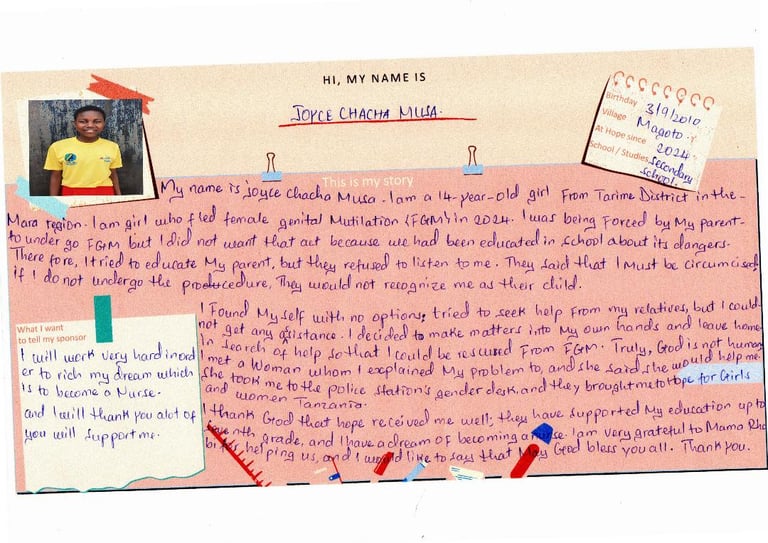 HI, MY NAME IS
JOYCE CHACHA MUSA.
Birthday 3/9/2010
Village Magoto.
At Hope since 2024
School / Studies Secondary
School.
This is my story
My name is joyce Chacha Musa. I am a 14-year-old girl From Tarime District in the-
Mara region. I am girl who fled female genital Mutilation (FGM) in 2024. I was being Forced by My parent-
to under go FGM but I did not want that act because we had been educated in school about its dangers.
There fore, I tried to educate My parent, but they refused to listen to me. They said that I Must be circumcised
if I do not undergo the procedure, They would not recognize me as their child.
I Found My self with no options; tried to seek help From my relatives, but I could
not get any assistance. I decided to make matters into My own hands and leave home
in search of help so that I could be rescued From FGM. Truly, God is not human
I met a Woman whom I explained My problem to, and she said she would help me.
she took me to the police station's gender desk, and they brought me to Hope for Girls
and women Tanzania.
I thank God that hope received me well; they have supported My education up to
nth grade, and I have a dream of becoming a nurse. I am very grateful to Mama Rho
helping us, and I would like to say that May God bless you all. Thank you.
What I want
to tell my sponsor
I will work very hard in ord
er to rich my dream which
is to become a Nurse.
and I will thank you alot of
you will support me.